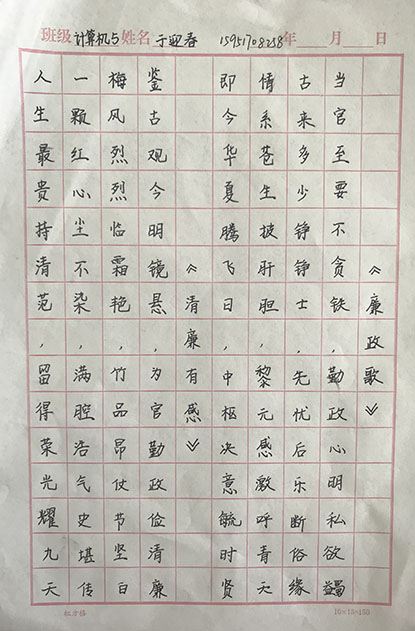 班级 计算机与 姓名 于迎春 15951708258 年 月 日
《廉政歌》
当官至要不贪铁,勤政心明私欲蠲
古来多少铮铮士,先忧后乐断俗缘
情系苍生披肝胆,黎元感激呼青天
即今华夏腾飞日,中枢决意毓时贤
《清廉有感》
鉴古观今明镜悬,为官勤政俭清廉
梅风烈烈临霜艳,竹品昂仗节坚白
一颗红心尘不染,满腔浩气史堪传
人生最贵持清范,留得荣光耀九天
10×15=150